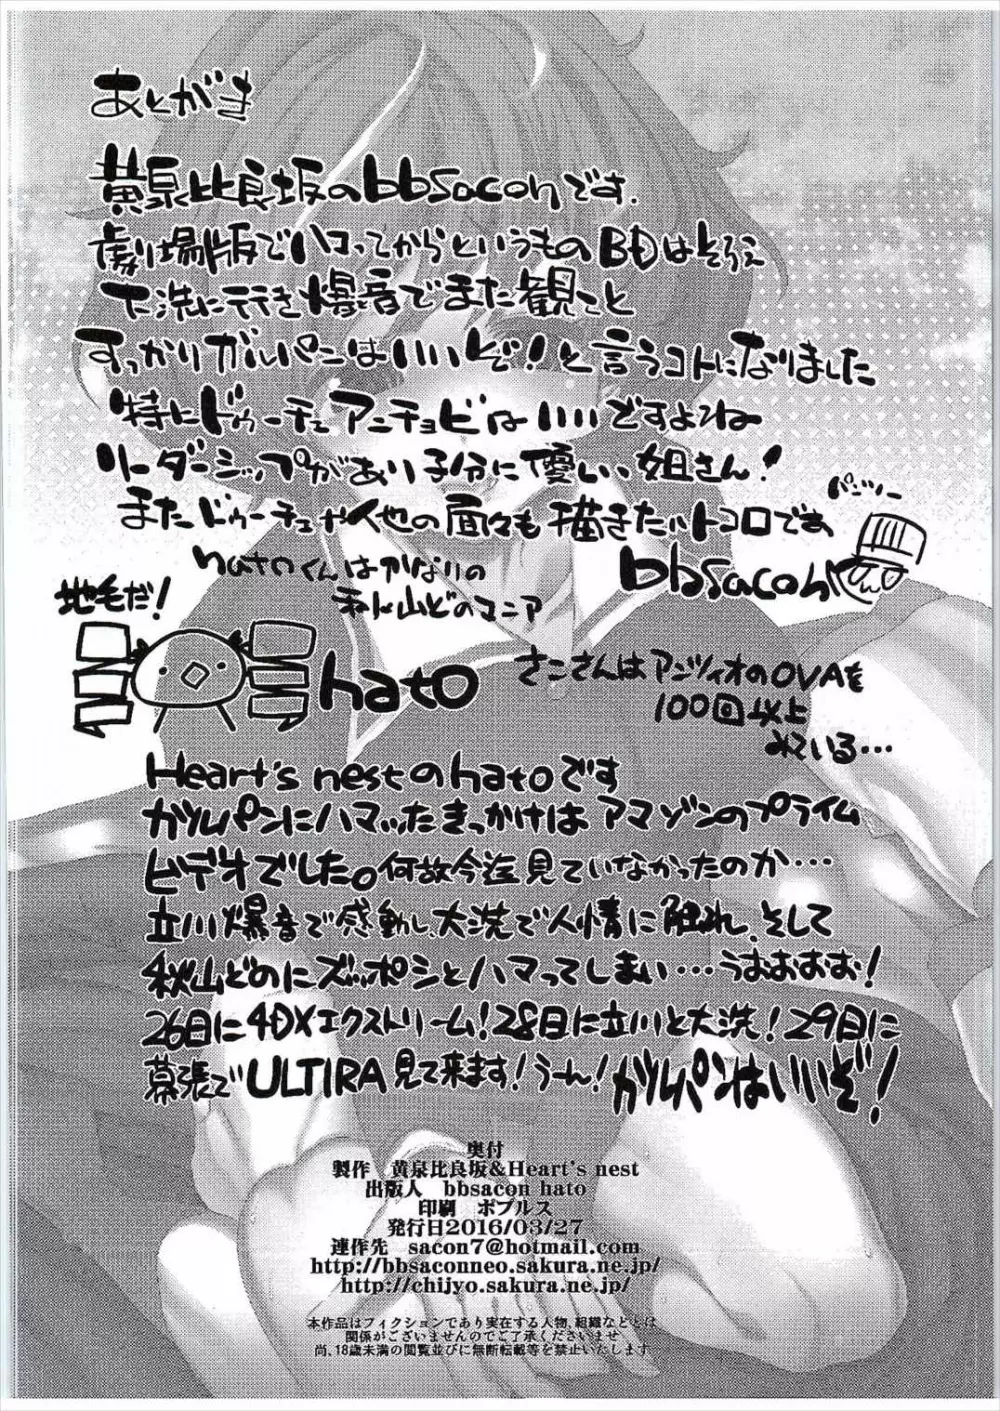 あとがき
黄泉比良坂のbbsaconです.
劇場版でハマってからというものBDはそろえ
大洗に行き爆音でまた観てと
すっかりガルパンはいいぞ!と言うコトになりました
特にドゥーチェアンチョビはいいですよね
リーダーシップがあり子分に優しい姐さん!
またドゥーチェや他の面々も描きたいトコロです
パンツァー
bbsacon
hatoくんはかなりの
秋山どのマニア
地毛だ!
hato
さこさんはアンツィオのOVAを
100回以上
みている…
Heart's nestのhatoです
ガルパンにハマったきっかけはアマゾンのプライム
ビデオでした。何故今迄見ていなかったのか…
立川爆音で感動し、大洗で人情に触れ、そして
秋山どのにズッポシとハマってしまい…うおおおお!
26日に4DXエクストリーム!28日に立川と大洗!29日に
幕張でULTIRA見て来ます!うーん!ガルパンはいいぞ!
奥付
製作　黄泉比良坂&Heart's nest
出版人　bbsacon hato
印刷　ポプルス
発行日2016/03/27
連作先　sacon7@hotmail.com
http://bbsaconneo.sakura.ne.jp/
http://chijyo.sakura.ne.jp/
本作品はフィクションであり実在する人物、組織などとは
関係がございませんのでご了承くださいませ
尚、18歳未満の閲覧並びに無断転載等を禁止いたします